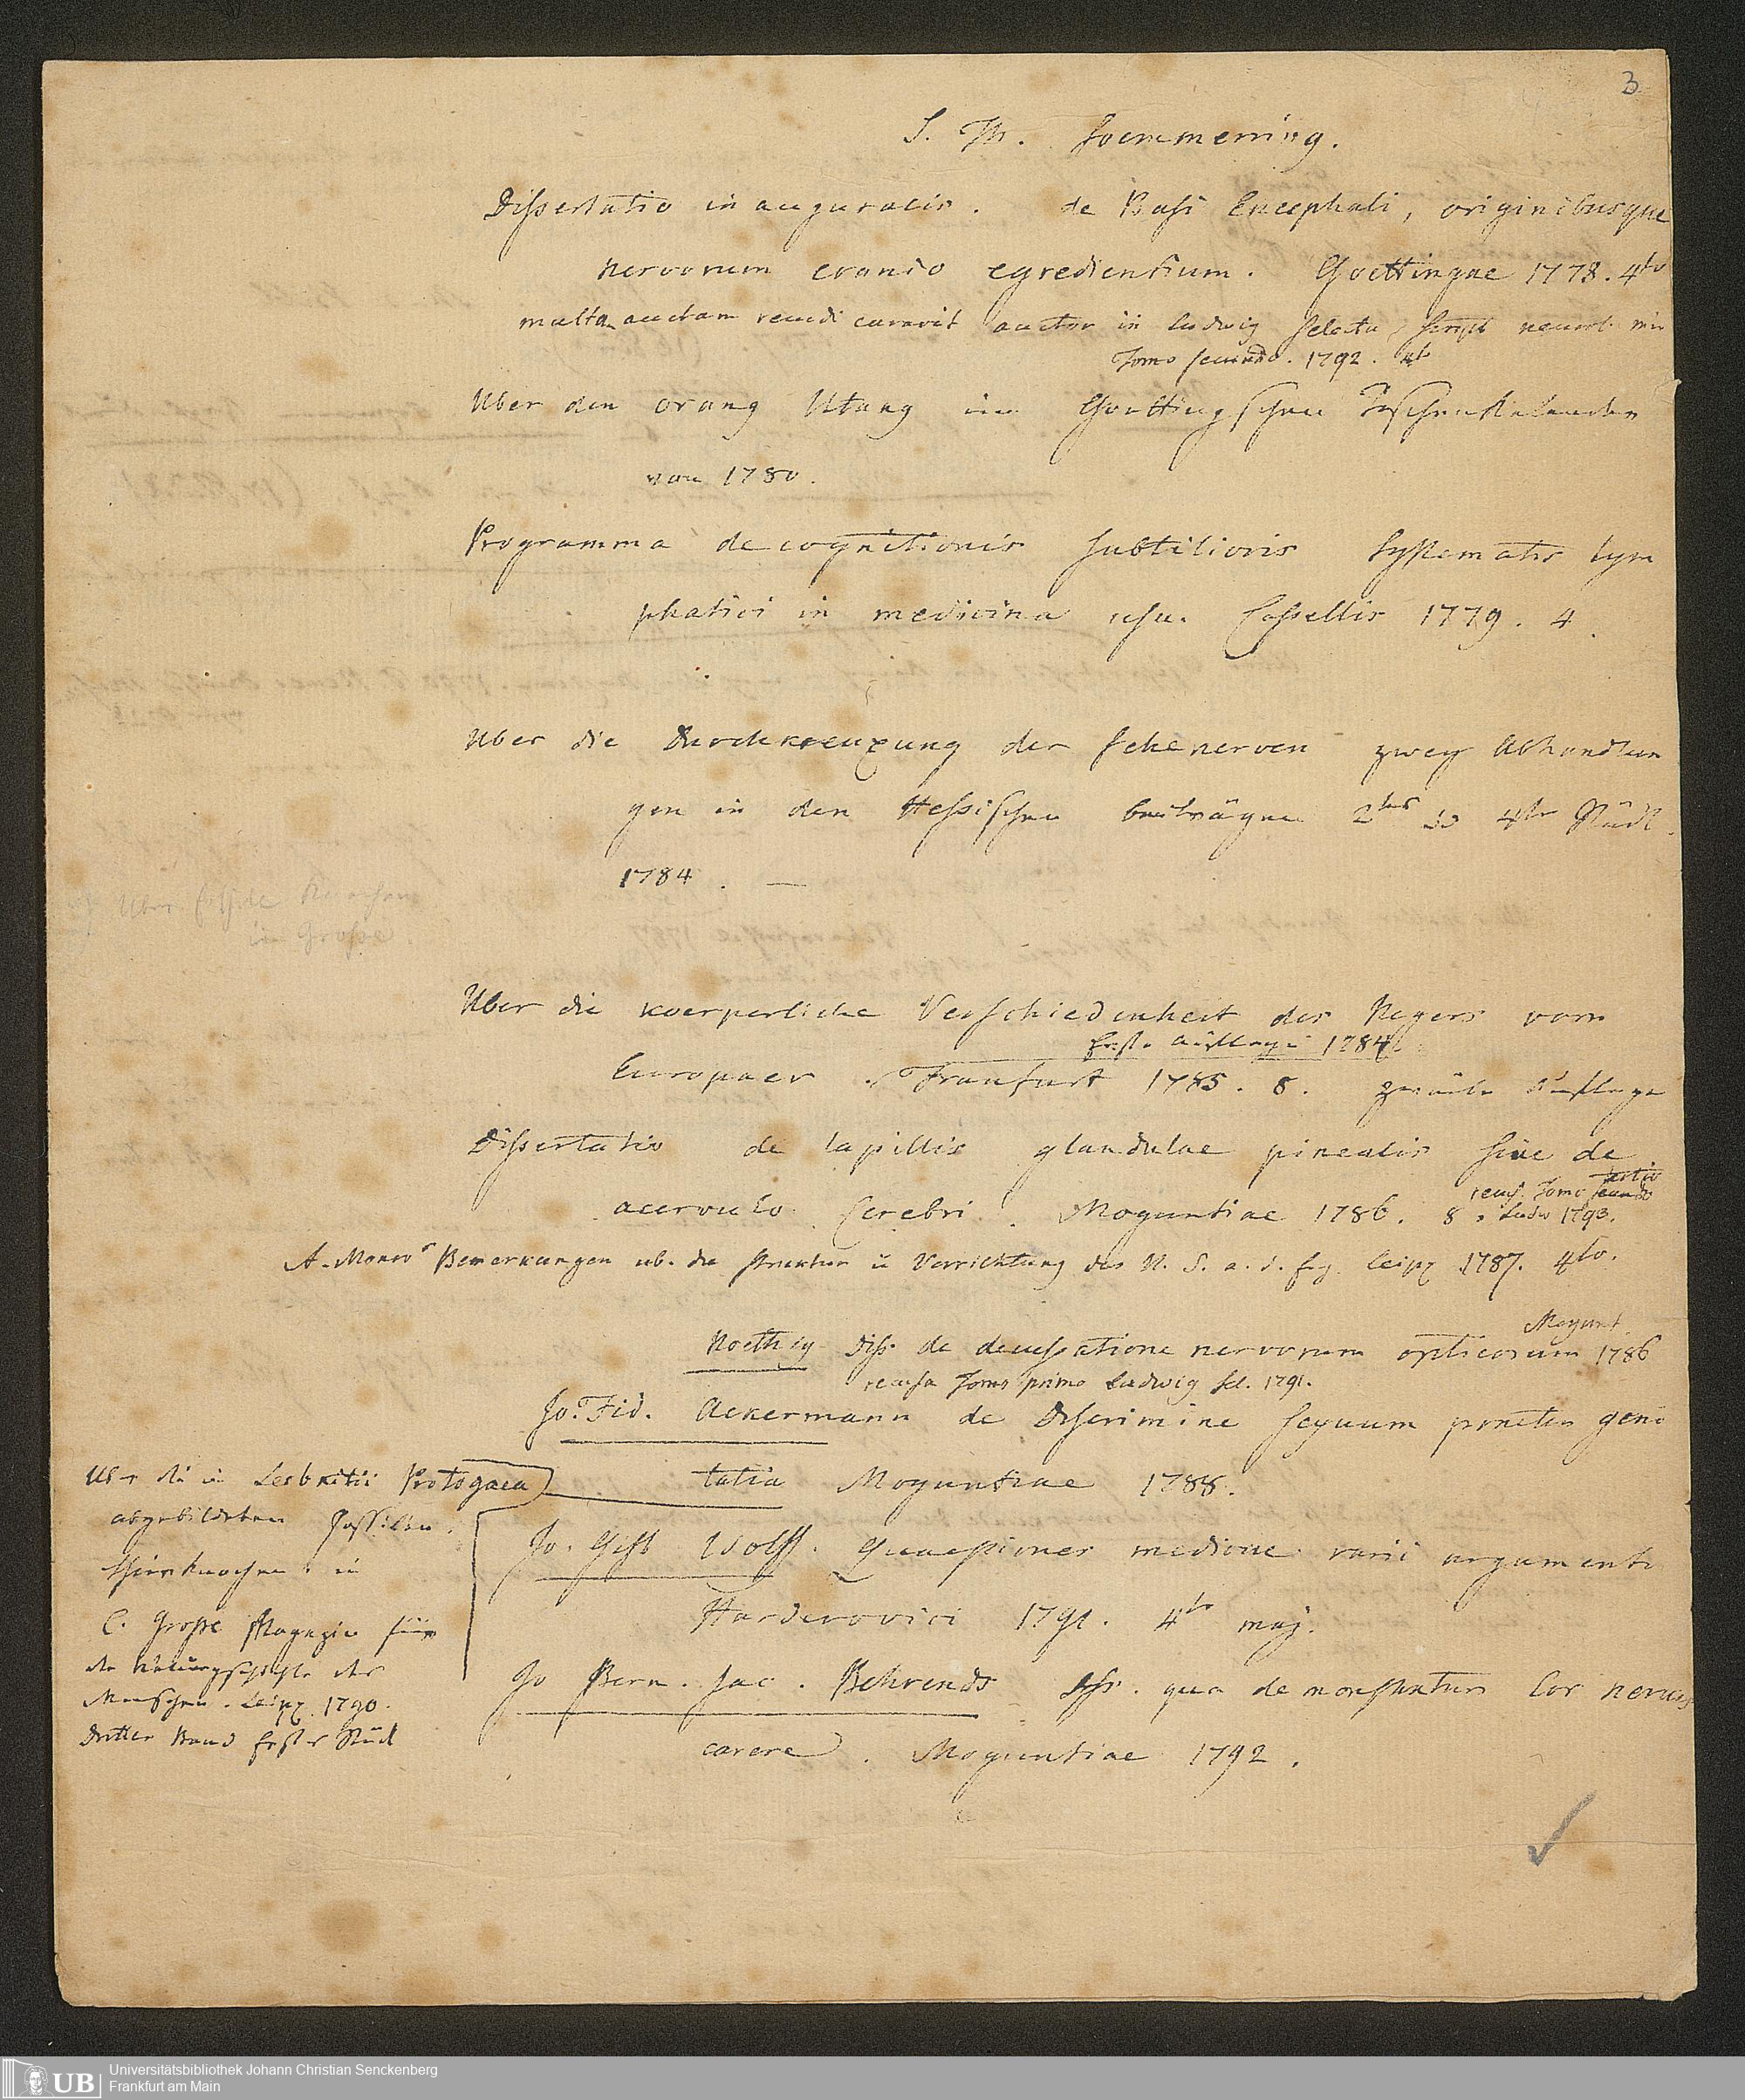 3
S. Th. Soemmerring.
Dissertatio inauguralis. de Basi Encephali, originibusque
nervorum cranio egredientium. Goettingae 1778. 4to
multa auctam recudi curavit auctor in Ludwig Selecta Script neurol. min
Tomo secundo. 1792. 4to
Uber den Orang Utang im Goettingschen Taschenkalender
von 1780.
Programma de cognitionis subtilioris Systematis lym
phatici in medicina usu. Cassellis 1779. 4.
Uber die Durchkreuzung der Sehenerven zwey Abhandlun
gen in den Hessischen Beiträgen 2tes 4te Stück.
1784. —
Uber die koerperliche Verschiedenheit des Negers vom
Erste Auflage 1784
Europaer. Frankfurt 1785. 8. zweite Auflage
Dissertatio de lapillis glandulae pinealis sive de
acervulo Cerebri. Moguntiae 1786. 8
recus. Tomo tertio secundo
Ludw 1793.
A. Monro's Bemerkungen ub. die Structur u Verrichtung des N. S. a. d. Eng. Leipz 1787. 4to.
Noethig Diss. de decussatione nervorum opticorum Mogunt. 1786
recusa Tomo primo Ludwig Sel. 1791.
Jo. Fid. Ackermann de Discrimine sexuum praeter geni
talia Moguntiae 1788.
Jo. Gist Wolff. Quaestiones medicae varii argumenti
Harderovici 1791. 4to maj.
Jo Bern. Jac. Behrends Diss. qua demonstratur Cor nervis
carere. Moguntiae 1792.
Uber in Großen.
Uber die in Leibnitii Protogaea
abgebildeten fossilen
Thierknochen in
C. Grosse Magazin für
die Naturgeschichte des
Menschen. Leipz. 1790.
Dritter Band Erstes Stück
UB
Universitätsbibliothek Johann Christian Senckenberg
Frankfurt am Main